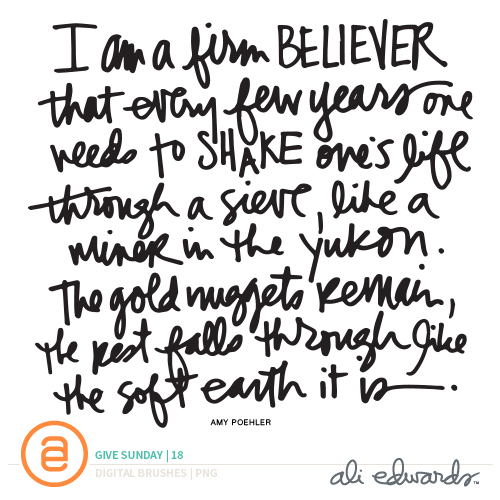 I am a firm BELIEVER
that every few years one
needs to SHAKE one's life
through a sieve, like a
miner in the yukon.
The gold nuggets remain,
the rest falls through like
the soft earth it is—.
AMY POEHLER
ae
GIVE SUNDAY | 18
DIGITAL BRUSHES | PNG
ali edwards™